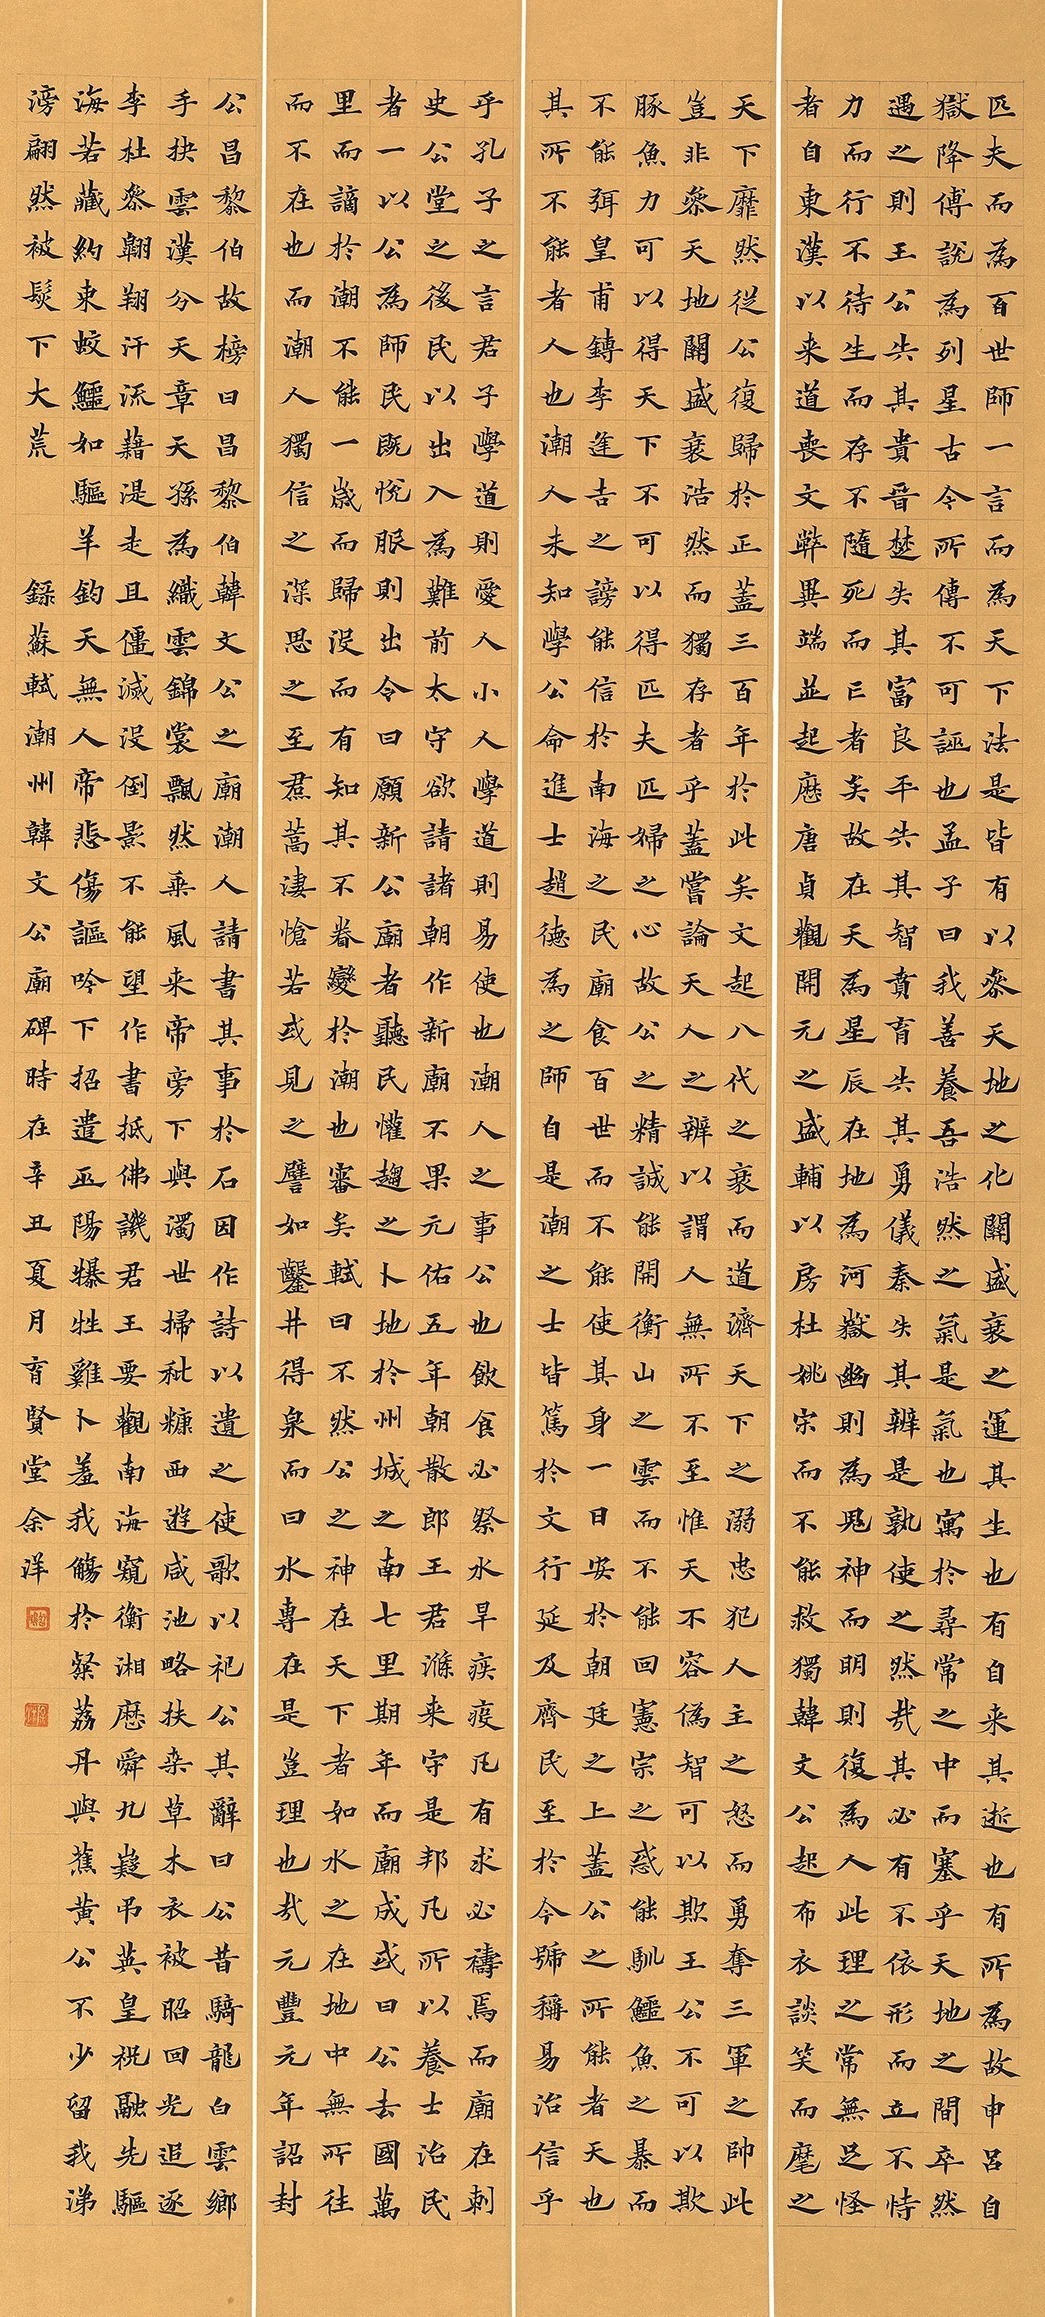 匹夫而為百世師一言而為天下法是皆有以叅天地之化關盛衰之運其生也有自来其逝也有所為故申呂自
獄降傅說為列星古今所傳不可誣也孟子曰我善養吾浩然之氣是氣也寓於尋常之中而塞乎天地之間卒然
遇之則王公失其貴晉楚失其富良平失其智賁育失其勇儀秦失其辨是孰使之然哉其必有不依形而立不恃
力而行不待生而存不隨死而亡者矣故在天為星辰在地為河嶽幽則為鬼神而明則復為人此理之常無足怪
者自東漢以来道喪文弊異端並起歷唐貞觀開元之盛輔以房杜姚宋而不能救獨韓文公起布衣談笑而麾之
天下靡然從公復歸於正蓋三百年於此矣文起八代之衰而道濟天下之溺忠犯人主之怒而勇奪三軍之帥此
豈非叅天地關盛衰浩然而獨存者乎蓋嘗論天人之辨以謂人無所不至惟天不容偽智可以欺王公不可以欺
豚魚力可以得天下不可以得匹夫匹婦之心故公之精誠能開衡山之雲而不能回憲宗之惑能馴鱷魚之暴而
不能弭皇甫鎛李逢吉之謗能信於南海之民廟食百世而不能使其身一日安於朝廷之上蓋公之所能者天也
其所不能者人也潮人未知學公命進士趙德為之師自是潮之士皆篤於文行延及齊民至於今號稱易治信乎
乎孔子之言君子學道則愛人小人學道則易使也潮人之事公也飲食必祭水旱疾疫凡有求必禱焉而廟在刺
史公堂之後民以出入為難前太守欲請諸朝作新廟不果元佑五年朝散郎王君滌来守是邦凡所以養士治民
者一以公為師民既悅服則出令曰願新公廟者聽民懽趨之卜地於州城之南七里期年而廟成或曰公去國萬
里而謫於潮不能一歲而歸沒而有知其不眷變於潮也審矣軾曰不然公之神在天下者如水之在地中無所往
而不在也而潮人獨信之深思之至焄蒿淒愴若或見之譬如鑿井得泉而曰水專在是豈理也哉元豐元年詔封
公昌黎伯故榜曰昌黎伯韓文公之廟潮人請書其事於石因作詩以遺之使歌以祀公其辭曰公昔騎龍白雲鄉
手抉雲漢分天章天孫為織雲錦裳飄然乘風来帝旁下與濁世掃秕糠西遊咸池略扶桑草木衣被昭回光追逐
李杜叅翱翔汗流藉湜走且僵滅沒倒景不能望作書抵佛譏君王要觀南海窺衡湘歷舜九嶷弔英皇祝融先驅
海若藏約束蛟鱷如驅羊鈞天無人帝悲傷謳吟下招遣巫陽犦牲雞卜羞我觴於粲荔丹與蕉黃公不少留我涕
滂翩然被髮下大荒 錄蘇軾潮州韓文公廟碑時在辛丑夏月育賢堂余洋